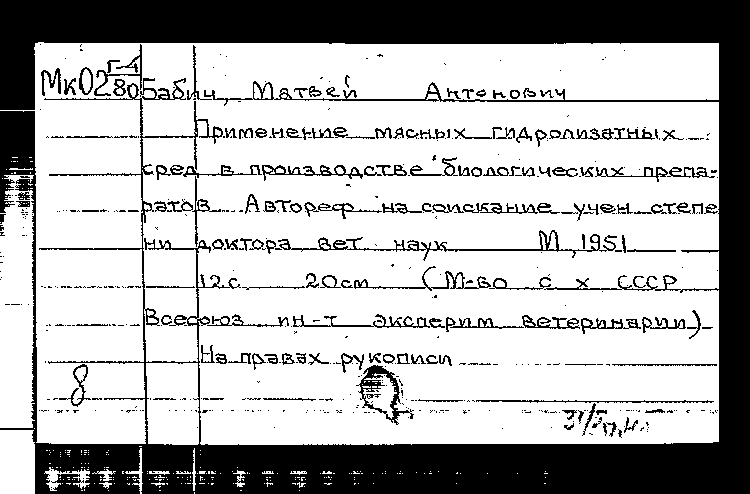 МкО2 Г-4/80 Бабич, Матвей Антонович
Применение мясных гидролизатных
сред в производстве биологических препа-
ратов Автореф на соискание учен степе
ни доктора вет. наук М, 1951
12с 20см (М-во с х СССР
Всесоюз ин-т эксперим ветеринарии)
На правах рукописи
8